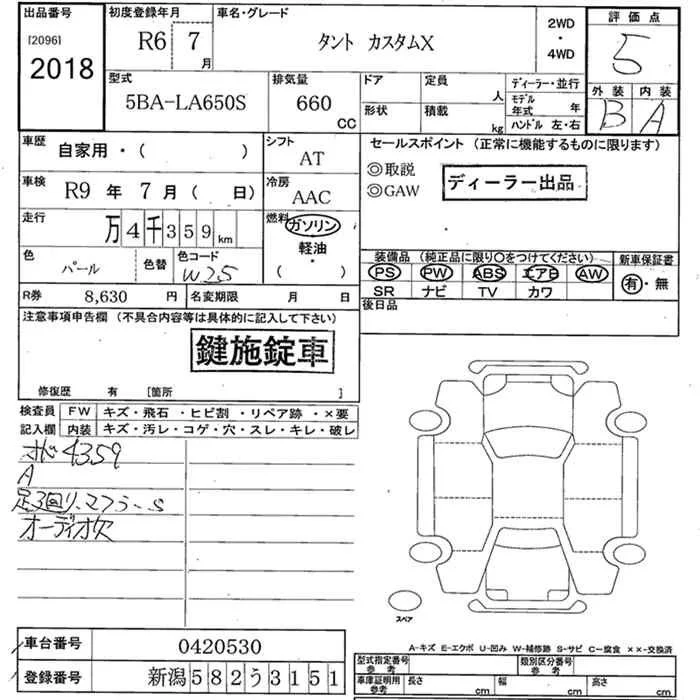 出品番号 初度登録年月 車名・グレード 2WD ・ 4WD 評価点
[2096] 2018 R6 7月 タント カスタムX 5
型式 排気量 ドア 定員 人 ディーラー・並行 外装 内装
5BA-LA650S 660 CC 形状 積載 kg モデル年式 年 ハンドル 左・右 B A
車歴 自家用・( ) シフト AT セールスポイント (正常に機能するものに限ります)
◎取説
◎GAW
ディーラー出品
車検 R9 年 7 月 ( 日) 冷房 AAC
走行 万4千359km 燃料 ガソリン・軽油・( )
色 パール 色替 色コード W25
装備品 (純正品に限り〇をつけてください) 新車保証書
PS PW ABS エアB AW 有・無
SR ナビ TV カワ
R券 8,630 円 名変期限 月 日 後日品
注意事項申告欄 (不具合内容等は具体的に記入して下さい)
鍵施錠車
修復歴 有 [箇所 ]
検査員 FW キズ・飛石・ヒビ割・リペア跡・×要
記入欄 内装 キズ・汚レ・コゲ・穴・スレ・キレ・破レ
4359
A
足回り、マフラーS
オーディオ欠
スペア
A-キズ E-エクボ U-凹み W-補修跡 S-サビ C-腐食 ××-交換済
車台番号 0420530
登録番号 新潟582う3151
型式指定番号 参考 類別区分番号 参考
車庫証明用 参考 長さ cm 幅 cm 高さ cm